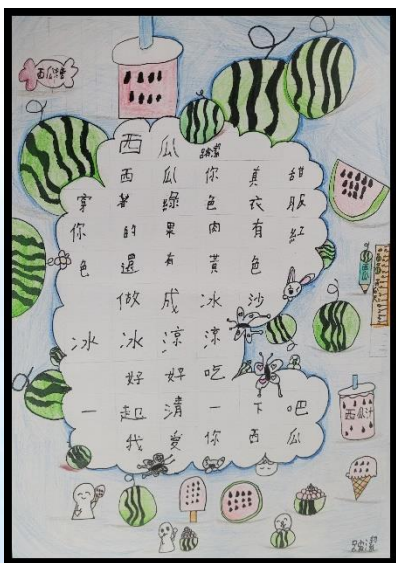 西瓜
西瓜你真甜
穿著綠色衣服
你的果肉有紅
色還有黃色
做成冰沙
冰冰涼涼
好好吃
一起清一下吧
我愛你西瓜
西瓜汁